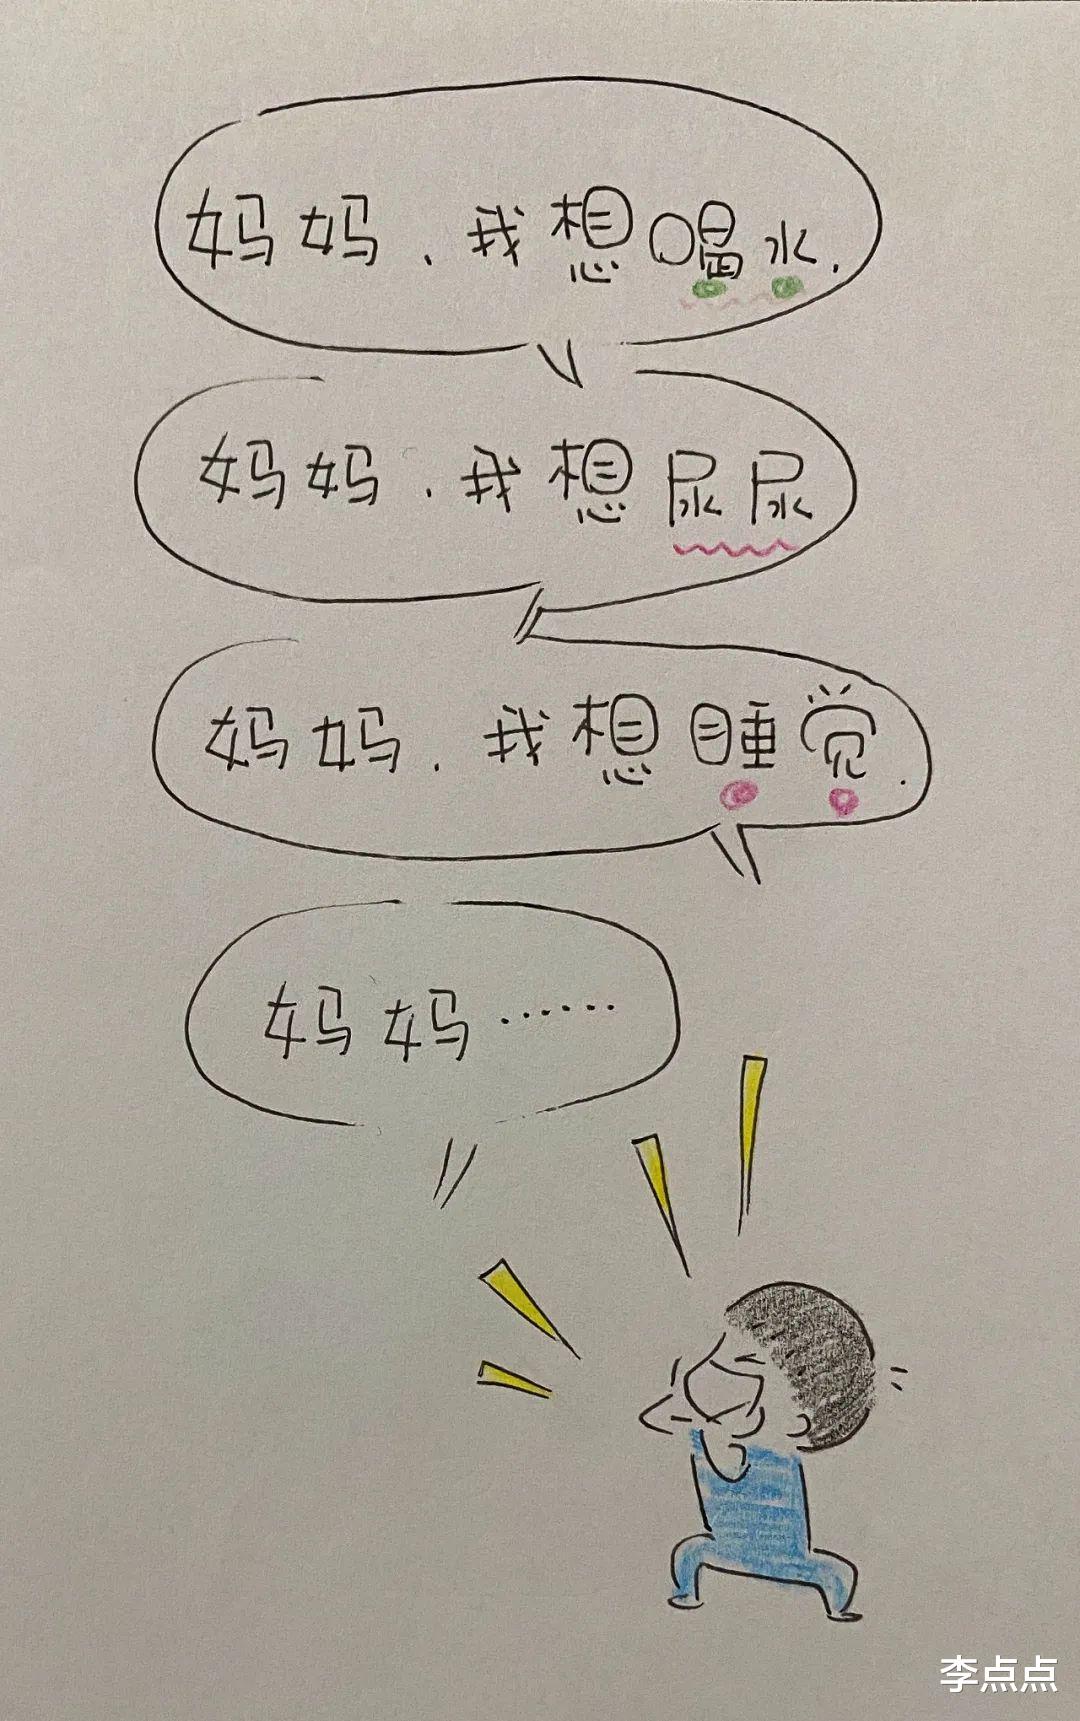 妈妈、我想喝水.
妈妈.我想尿尿
妈妈.我想睡觉.
妈妈……
李点点